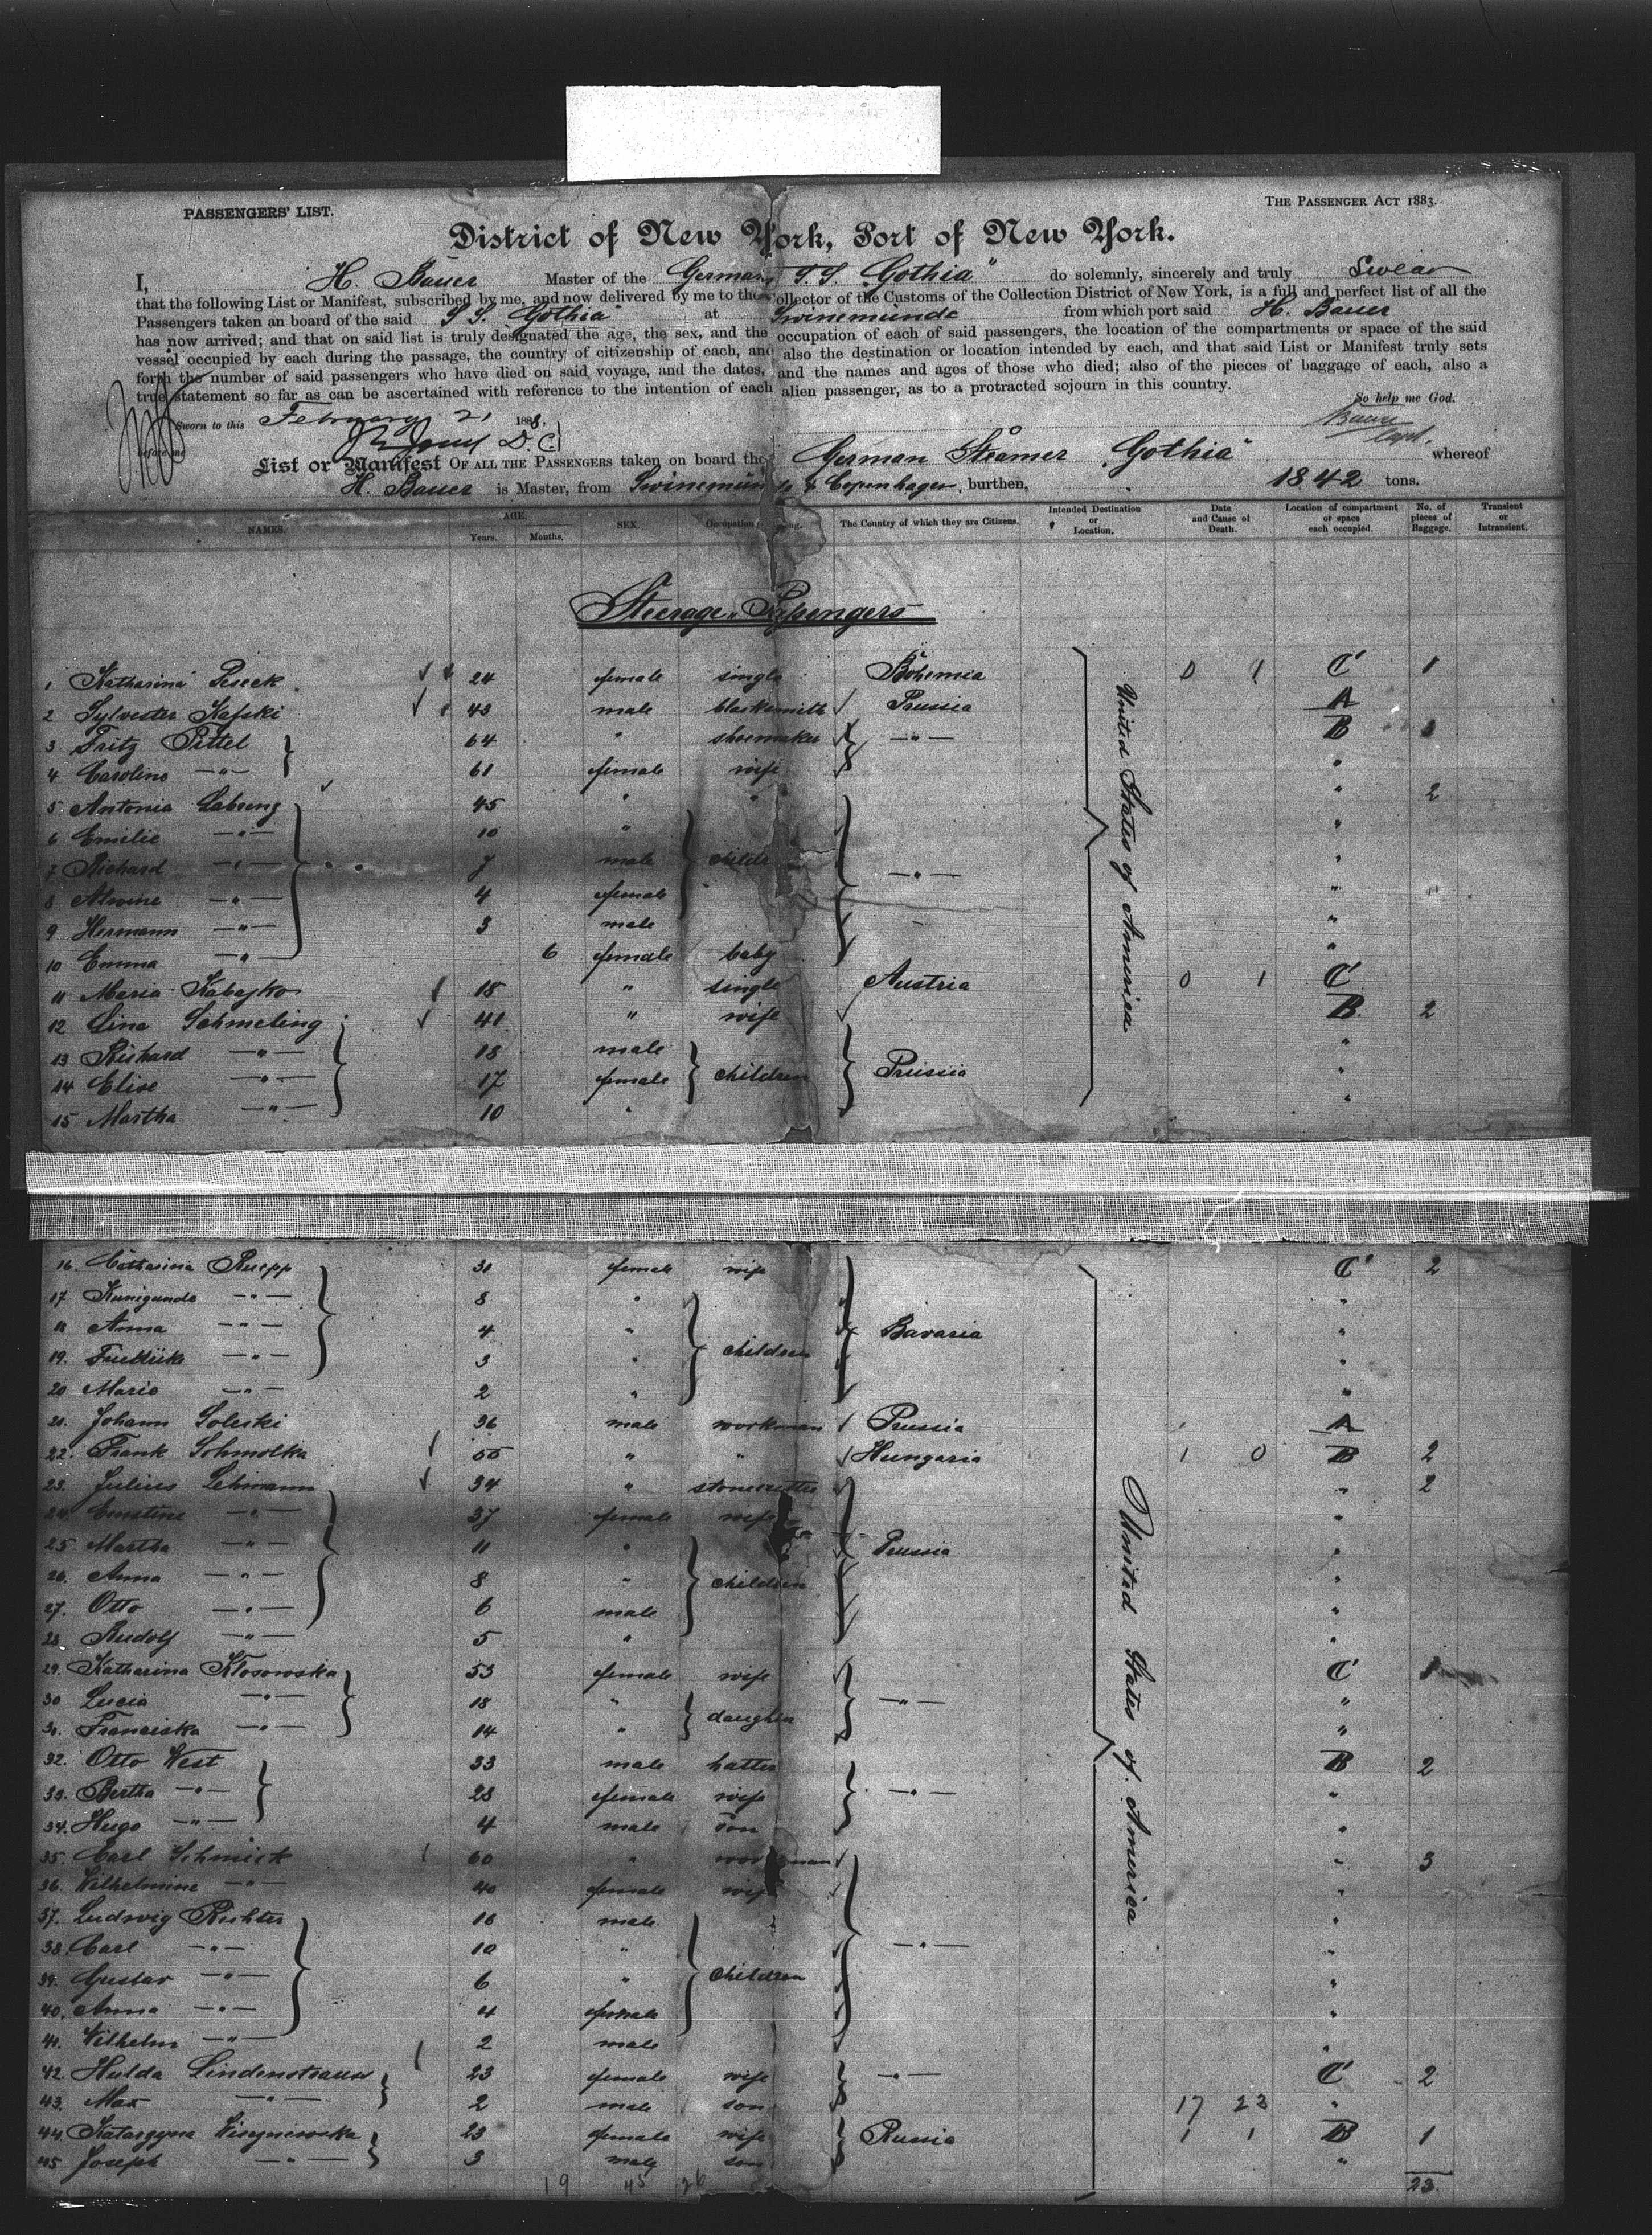 PASSENGERS' LIST.
THE PASSENGER ACT 1883.
District of New York, Port of New York.
I, H. Bauer Master of the German S.S. "Gothia" do solemnly, sincerely and truly Swear
that the following List or Manifest, subscribed by me, and now delivered by me to the Collector of the Customs of the Collection District of New York, is a full and perfect list of all the
Passengers taken on board of the said S.S. "Gothia" at Swinemunde from which port said H. Bauer
has now arrived; and that on said list is truly designated the age, the sex, and the occupation of each of said passengers, the location of the compartments or space of the said
vessel occupied by each during the passage, the country of citizenship of each, and also the destination or location intended by each, and that said List or Manifest truly sets
forth the number of said passengers who have died on said voyage, and the dates, and the names and ages of those who died; also of the pieces of baggage of each, also a
true statement so far as can be ascertained with reference to the intention of each alien passenger, as to a protracted sojourn in this country.
So help me God.
Sworn to this February 21 1888.
before me D.C.
Bauer
Capt.
List or Manifest OF ALL THE PASSENGERS taken on board the German Steamer "Gothia" whereof
H. Bauer is Master, from Swinemünde & Copenhagen, burthen, 1842 tons.
NAMES. AGE. Years. Months. SEX. Occupation The Country of which they are Citizens. Intended Destination or Location. Date and Cause of Death. Location of compartment or space each occupied. No. of pieces of Baggage. Transient or Intransient.
Steerage-Passengers
1 Katharina Peseck 24 female single Bohemia 0 1 C 1
2 Sylvester Kafski 43 male blacksmith Prussia A
3 Fritz Pittel 64 " shoemaker —"— B
4 Caroline —"— 61 female wife "
5 Antonia Labseng 45 " " " 2
6 Emilie —"— 10 " "
7 Richard —"— 7 male children —"— "
8 Alwine —"— 4 female "
9 Hermann —"— 3 male "
10 Emma —"— 6 female baby "
11 Maria Kabajko 18 " single Austria 0 1 C
12 Lina Schmeling 41 " wife B 2
13 Richard —"— 18 male "
14 Elise —"— 17 female children Prussia "
15 Martha —"— 10 " "
United States of America
16. Catharina Ruepp 31 female wife C 2
17. Kunigunde —"— 8 " "
18 Anna —"— 4 " Bavaria "
19. Friedrike —"— 3 " children "
20 Marie —"— 2 " "
21. Johann Soleski 36 male workman Prussia A
22. Frank Schmolka 55 " " Hungaria 1 0 B 2
23. Julius Lehmann 34 " stonecutter " 2
24. Ernstine —"— 37 female wife "
25. Martha —"— 11 " Prussia "
26. Anna —"— 8 " children "
27. Otto —"— 6 male "
28 Rudolf —"— 5 " "
29. Katharina Klosowska 53 female wife C 1
30 Lucia —"— 18 " —"— "
31. Franciska —"— 14 " daughter "
32. Otto West 33 male hatter B 2
33. Bertha —"— 28 female wife —"— "
34. Hugo —"— 4 male son "
35. Carl Schmick 60 " workman " 3
36. Wilhelmine —"— 40 female wife "
37. Ludwig Richter 16 male "
38. Carl —"— 10 " —"— "
39. Gustav —"— 6 " children "
40. Anna —"— 4 female "
41. Wilhelm —"— 2 male "
42. Hulda Lindenstrauss 23 female wife —"— C 2
43. Max —"— 2 male son 17 23 "
44. Katarzyna Wiszniewska 23 female wife Russia 1 1 B 1
45 Joseph —"— 3 male son "
United States of America
19 45 26 23.